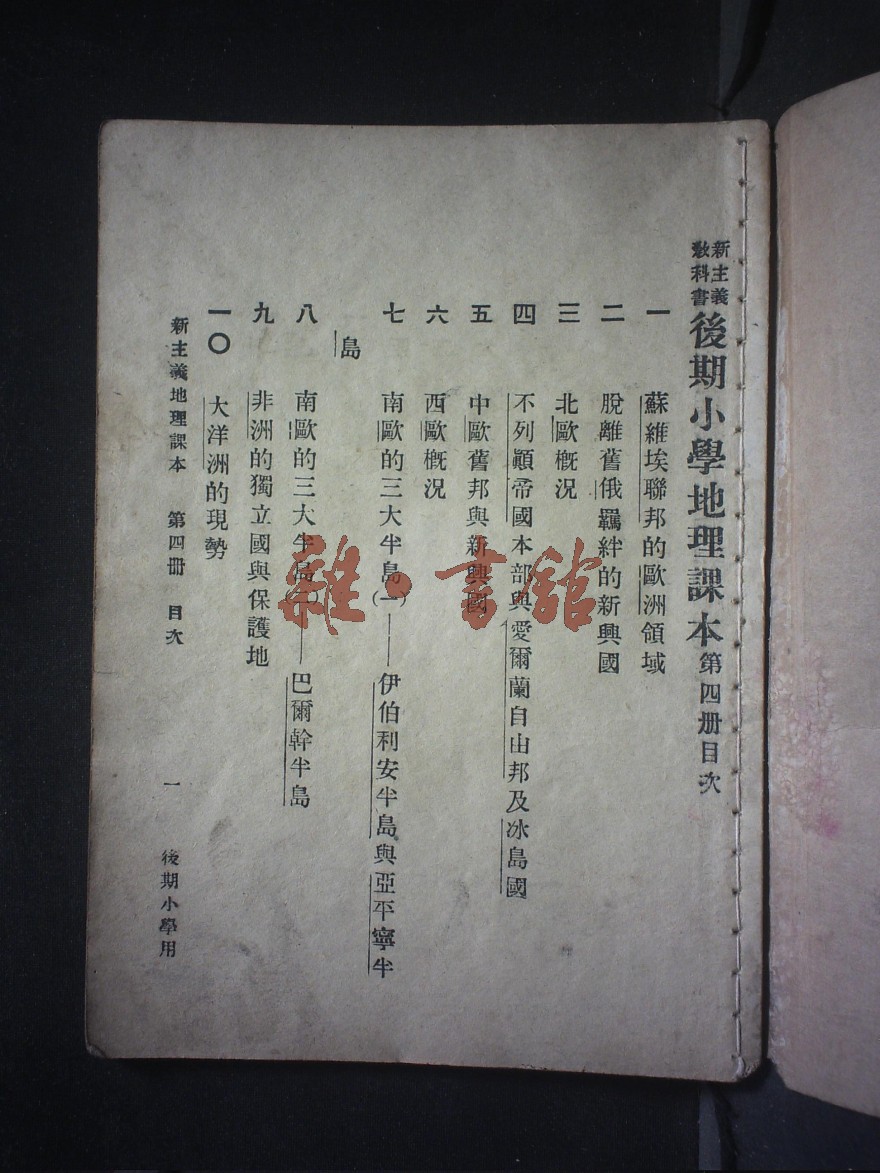 新主義教科書後期小學地理課本第四册目次
一 蘇維埃聯邦的歐洲領域
二 脫離舊俄羈絆的新興國
三 北歐槪況
四 不列顚帝國本部與愛爾蘭自由邦及冰島國
五 中歐舊邦與新興國
六 西歐槪況
七 南歐的三大半島(一)——伊伯利安半島與亞平寧半
島
八 南歐的三大半島(二)——巴爾幹半島
九 非洲的獨立國與保護地
一〇 大洋洲的現勢
新主義地理課本 第四册 目次 一 後期小學用
雜·書館